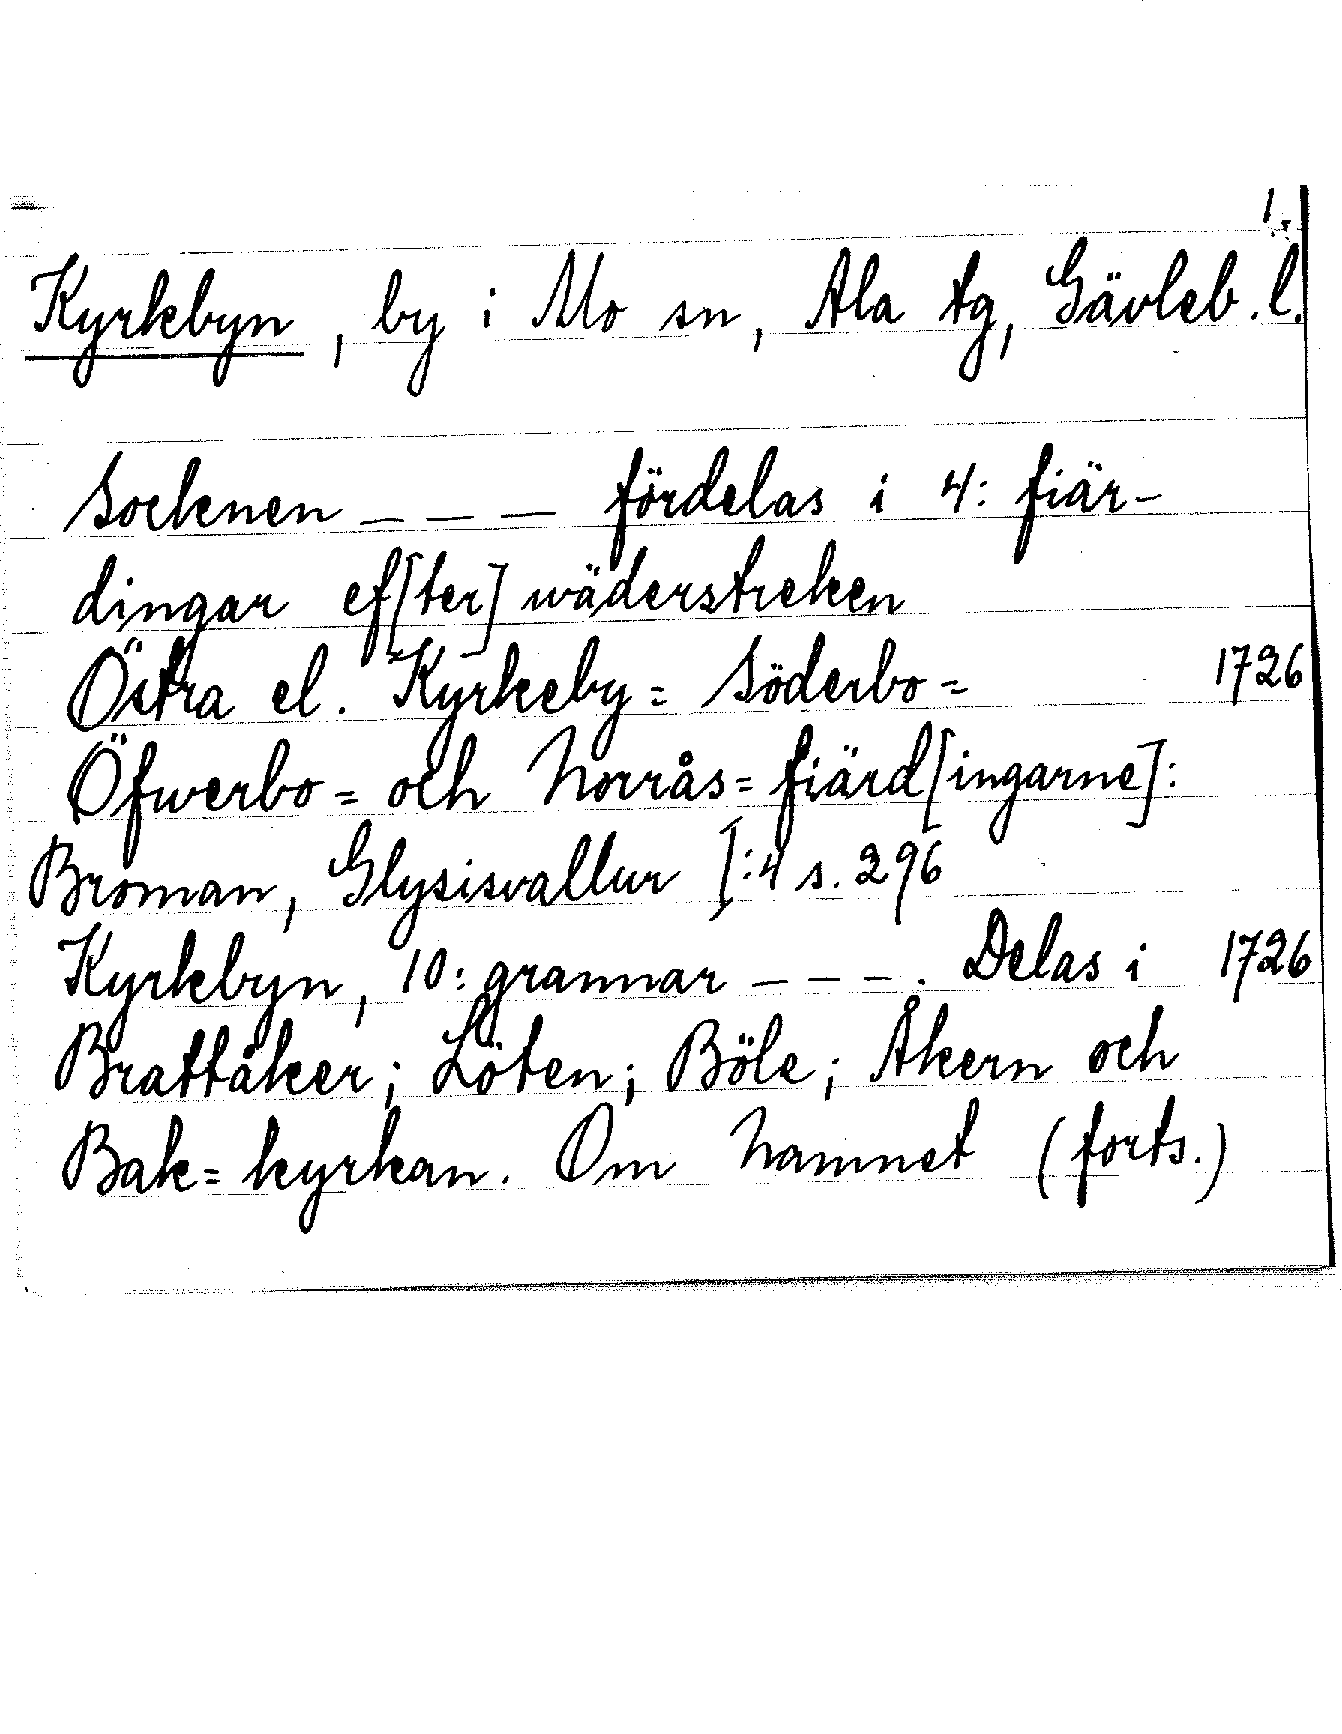 1.
Kyrkebyn, by i Mo sn, Ala tg, Gävleb. l.
Socknen _ _ _ fördelas i 4: fiär-
dingar ef[ter] wäderstreken
Östra el. Kyrkeby= Söderbo= 1726
Öfwerbo= och Norrås= fiärd[ingarne]:
Broman, Glysisvallur I:4 s. 296
Kyrkebyn, 10: grannar _ _ _. Delas i 1726
Brattåker; Löten; Böle; Åkern och
Bak=kyrkan. Om Namnet (forts.)